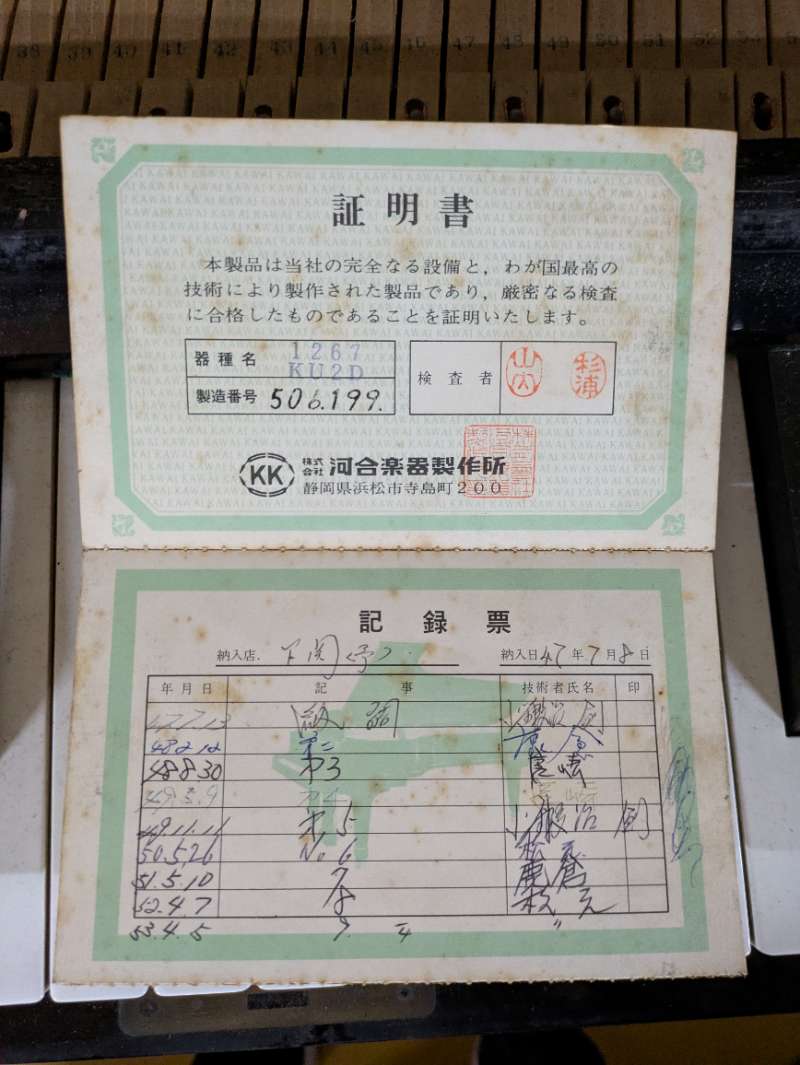 38 39 40 41 42 43 44 45 46 47 48 49 50 51 52 53
証明書
本製品は当社の完全なる設備と，わが国最高の
技術により製作された製品であり，厳密なる検査
に合格したものであることを証明いたします。
器種名 1267 KU2D
製造番号 506.199.
検査者 山内 杉浦
KK 株式会社 河合楽器製作所
静岡県浜松市寺島町200
記録票
納入店. 下関 納入日 47年7月8日
年月日 記事 技術者氏名 印
47.7.13 納調
48.2.12 第二
48.8.30 第3
49.5.9 第4
49.11.11 第5
50.5.26 No.6
51.5.10 7
52.4.7 8
53.4.5 9. 〃